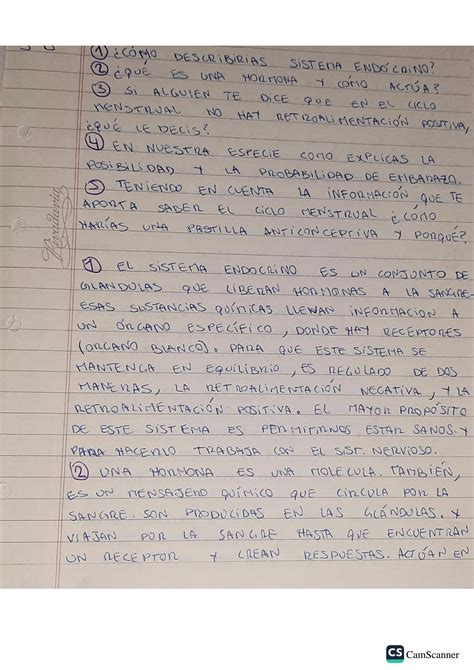 ① ¿CÓMO DESCRIBIRIAS SISTEMA ENDÓCRINO?
② ¿QUÉ ES UNA HORMONA Y CÓMO ACTÚA?
③ SI ALGUIEN TE DICE QUE EN EL CICLO
MENSTRUAL NO HAY RETROALIMENTACIÓN POSITIVA,
¿QUÉ LE DECIS?
④ EN NUESTRA ESPECIE COMO EXPLICAS LA
POSIBILIDAD Y LA PROBABILIDAD DE EMBARAZO.
⑤ TENIENDO EN CUENTA LA INFORMACIÓN QUE TE
APORTA SABER EL CICLO MENSTRUAL ¿CÓMO
HARÍAS UNA PASTILLA ANTICONCEPTIVA Y PORQUÉ?
① EL SISTEMA ENDOCRINO ES UN CONJUNTO DE
GLANDULAS QUE LIBERAN HORMONAS A LA SANGRE.
ESAS SUSTANCIAS QUÍMICAS LLEVAN INFORMACION A
UN ÓRGANO ESPECÍFICO, DONDE HAY RECEPTORES
(ORGANO BLANCO). PARA QUE ESTE SISTEMA SE
MANTENGA EN EQUILIBRIO, ES REGULADO DE DOS
MANERAS, LA RETROALIMENTACIÓN NEGATIVA, Y LA
RETROALIMENTACIÓN POSITIVA. EL MAYOR PROPÓSITO
DE ESTE SISTEMA ES PERMITIRNOS ESTAR SANOS. Y
PARA HACERLO TRABAJA CON EL SIST. NERVIOSO.
② UNA HORMONA ES UNA MOLECULA. TAMBIÉN,
ES UN MENSAJERO QUÍMICO QUE CIRCULA POR LA
SANGRE. SON PRODUCIDAS EN LAS GLÁNDULAS. Y
VIAJAN POR LA SANGRE HASTA QUE ENCUENTRAN
UN RECEPTOR Y CREAN RESPUESTAS. ACTÚAN EN
CS CamScanner